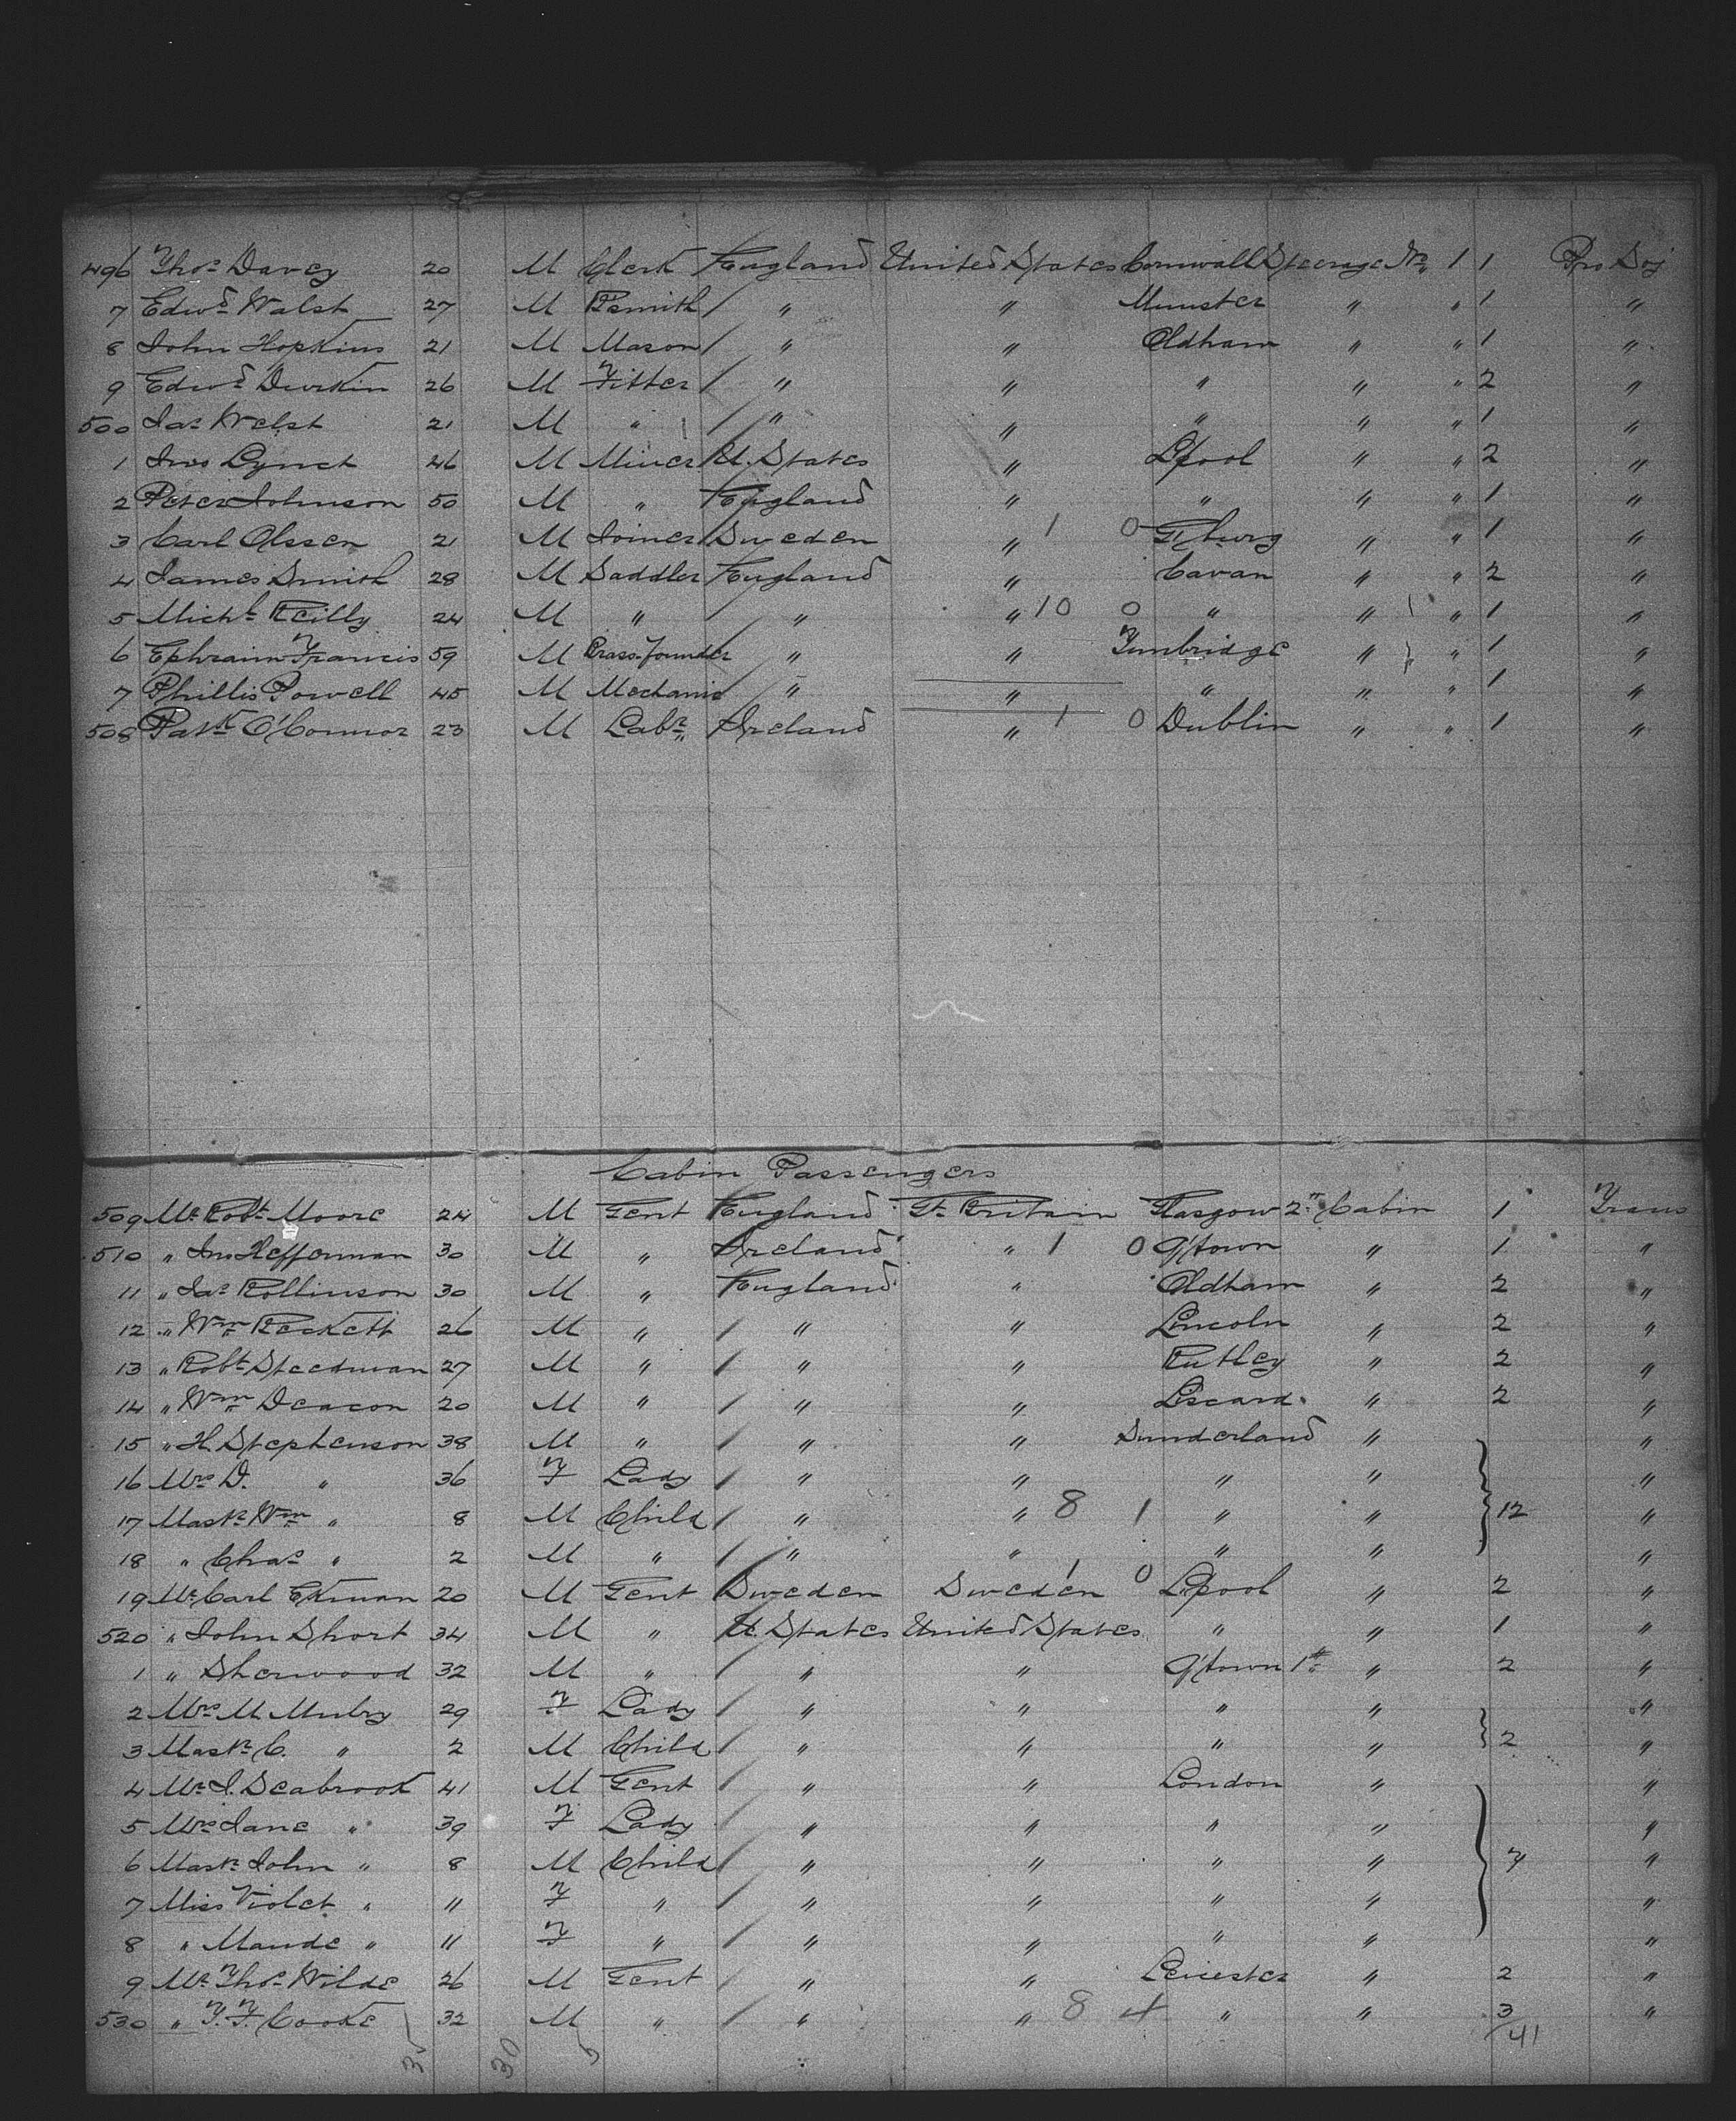 496 Thos Davey 20 M Clerk England United States Cornwall Steerage No 1 1 Pro Soj
7 Edwd Walsh 27 M Bsmith / " " Munster " " 1 "
8 John Hopkins 21 M Mason / " " Oldham " " 1 "
9 Edwd Durkin 26 M Fitter / " " " " " 2 "
500 Jas Welsh 21 M " / " " " " " 1 "
1 Jno Lynch 46 M Miner U. States " L'pool " " 2 "
2 Peter Johnson 50 M " England " " " " 1 "
3 Carl Olssen 21 M Joiner Sweden " 1 0 G'burg " " 1 "
4 James Smith 28 M Saddler England " Cavan " " 2 "
5 Michl Reilly 24 M " / " " 10 0 " " " 1 "
6 Ephraim Francis 59 M Brass-founder " " Tunbridge " " 1 "
7 Phillis Powell 45 M Mechanic " " " " " 1 "
508 Patk O'Connor 23 M Labr Ireland " 1 0 Dublin " " 1 "
Cabin Passengers
509 Mr Robt Moore 24 M Gent England Gt Britain Glasgow 2nd Cabin 1 Trans
510 " Jno Heffernan 30 M " Ireland " 1 0 Q'town " 1 "
11 " Jas Rollinson 30 M " England " Oldham " 2 "
12 " Wm Beckett 26 M " / " " Lincoln " 2 "
13 " Robt Steedman 27 M " / " " Rutley " 2 "
14 " Wm Deacon 20 M " / " " Liscard " 2 "
15 " H. Stephenson 38 M " / " " Sunderland " "
16 Mrs D. " 36 F Lady / " " " " "
17 Mastr Wm " 8 M Child / " " 8 1 " " 12 "
18 " Chas " 2 M " / " " " " "
19 Mr Carl Ekman 20 M Gent Sweden Sweden 1 0 L'pool " 2 "
520 " John Short 34 M " U. States United States " " 1 "
1 " Sherwood 32 M " / " " Q'town 1st " 2 "
2 Mrs M. Mulry 29 F Lady / " " " " "
3 Mastr C. " 2 M Child / " " " " 2 "
4 Mr J. Seabrook 41 M Gent / " " London " "
5 Mrs Jane " 39 F Lady / " " " " "
6 Mastr John " 8 M Child / " " " " 7 "
7 Miss Violet " 11 F " / " " " " "
8 " Maude " 11 F " / " " " " "
9 Mr Thos Wilde 26 M Gent / " " Leicester " 2 "
530 " T. F. Cooke 32 M " / " " 8 4 " " 3 "
41
35 30 5